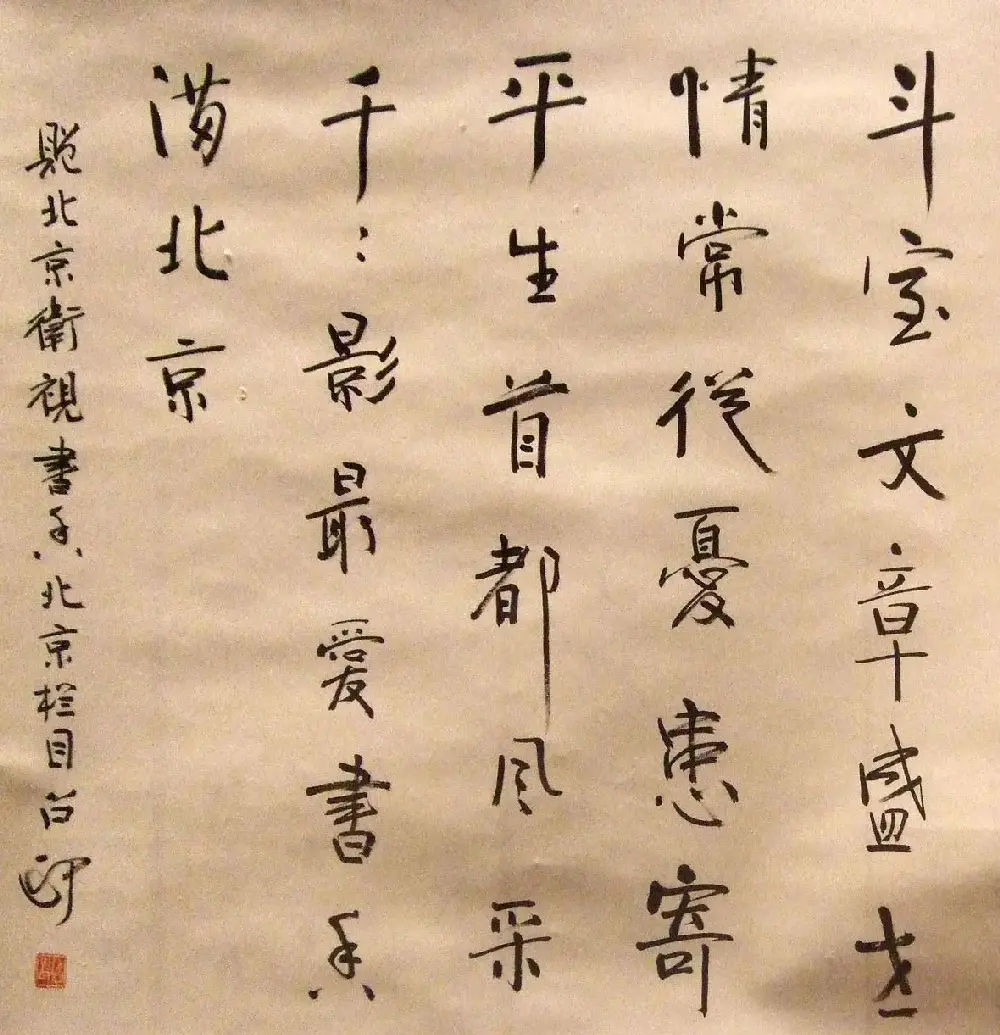 斗室文章盛世
情常從憂患寄
平生首都风采
千〻影最愛書香
满北京
北京衛視書香北京栏目